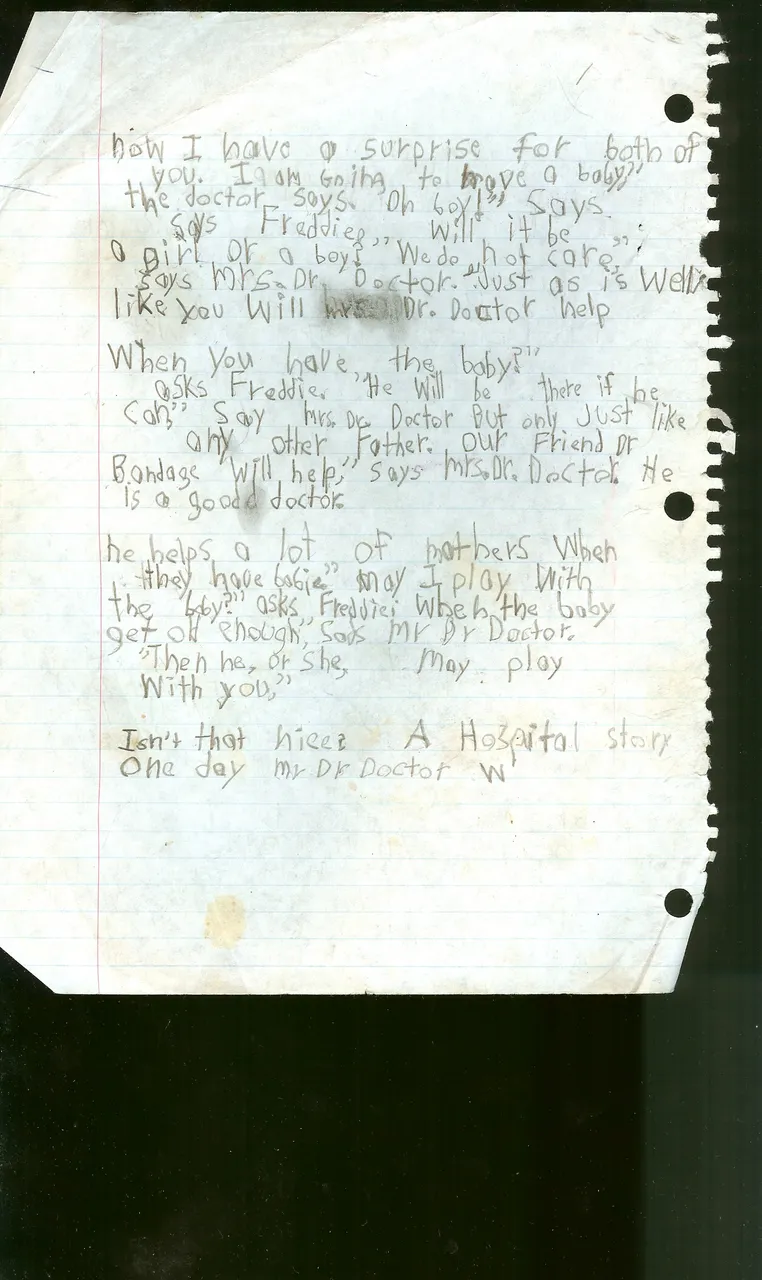 now I have a surprise for both of
you. I am Going to have a baby,"
the doctor says. "Oh boy!" Says
says Freddie, will it be
a girl or a boy?" "We do not care,"
says Mrs. Dr. Doctor. "Just as is Well
like you Will Dr. Doctor help
When you have, the baby?"
asks Freddie. "He Will be there if he
can," Say Mrs. Dr. Doctor But only Just like
any other Father. Our Friend Dr
Bandage "Will help," says Mrs. Dr. Doctor. He
is a good doctor.
he helps a lot of mothers When
they have babie." may I play With
the baby?" asks Freddie; When the baby
get old enough," Says Mr Dr Doctor.
"Then he, or she, May play
With you,"
Isn't that nice? A Hospital story
One day Mr Dr Doctor W